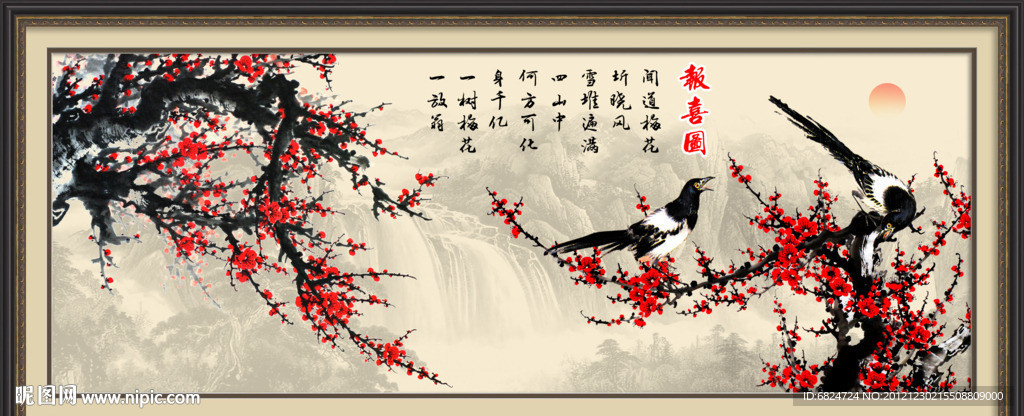 報喜圖
闻道梅花
圻晓风
雪堆遍满
四山中
何方可化
身千亿
一树梅花
一放翁
昵图网 www.nipic.com
ID:6824724 NO:20121230215508809000